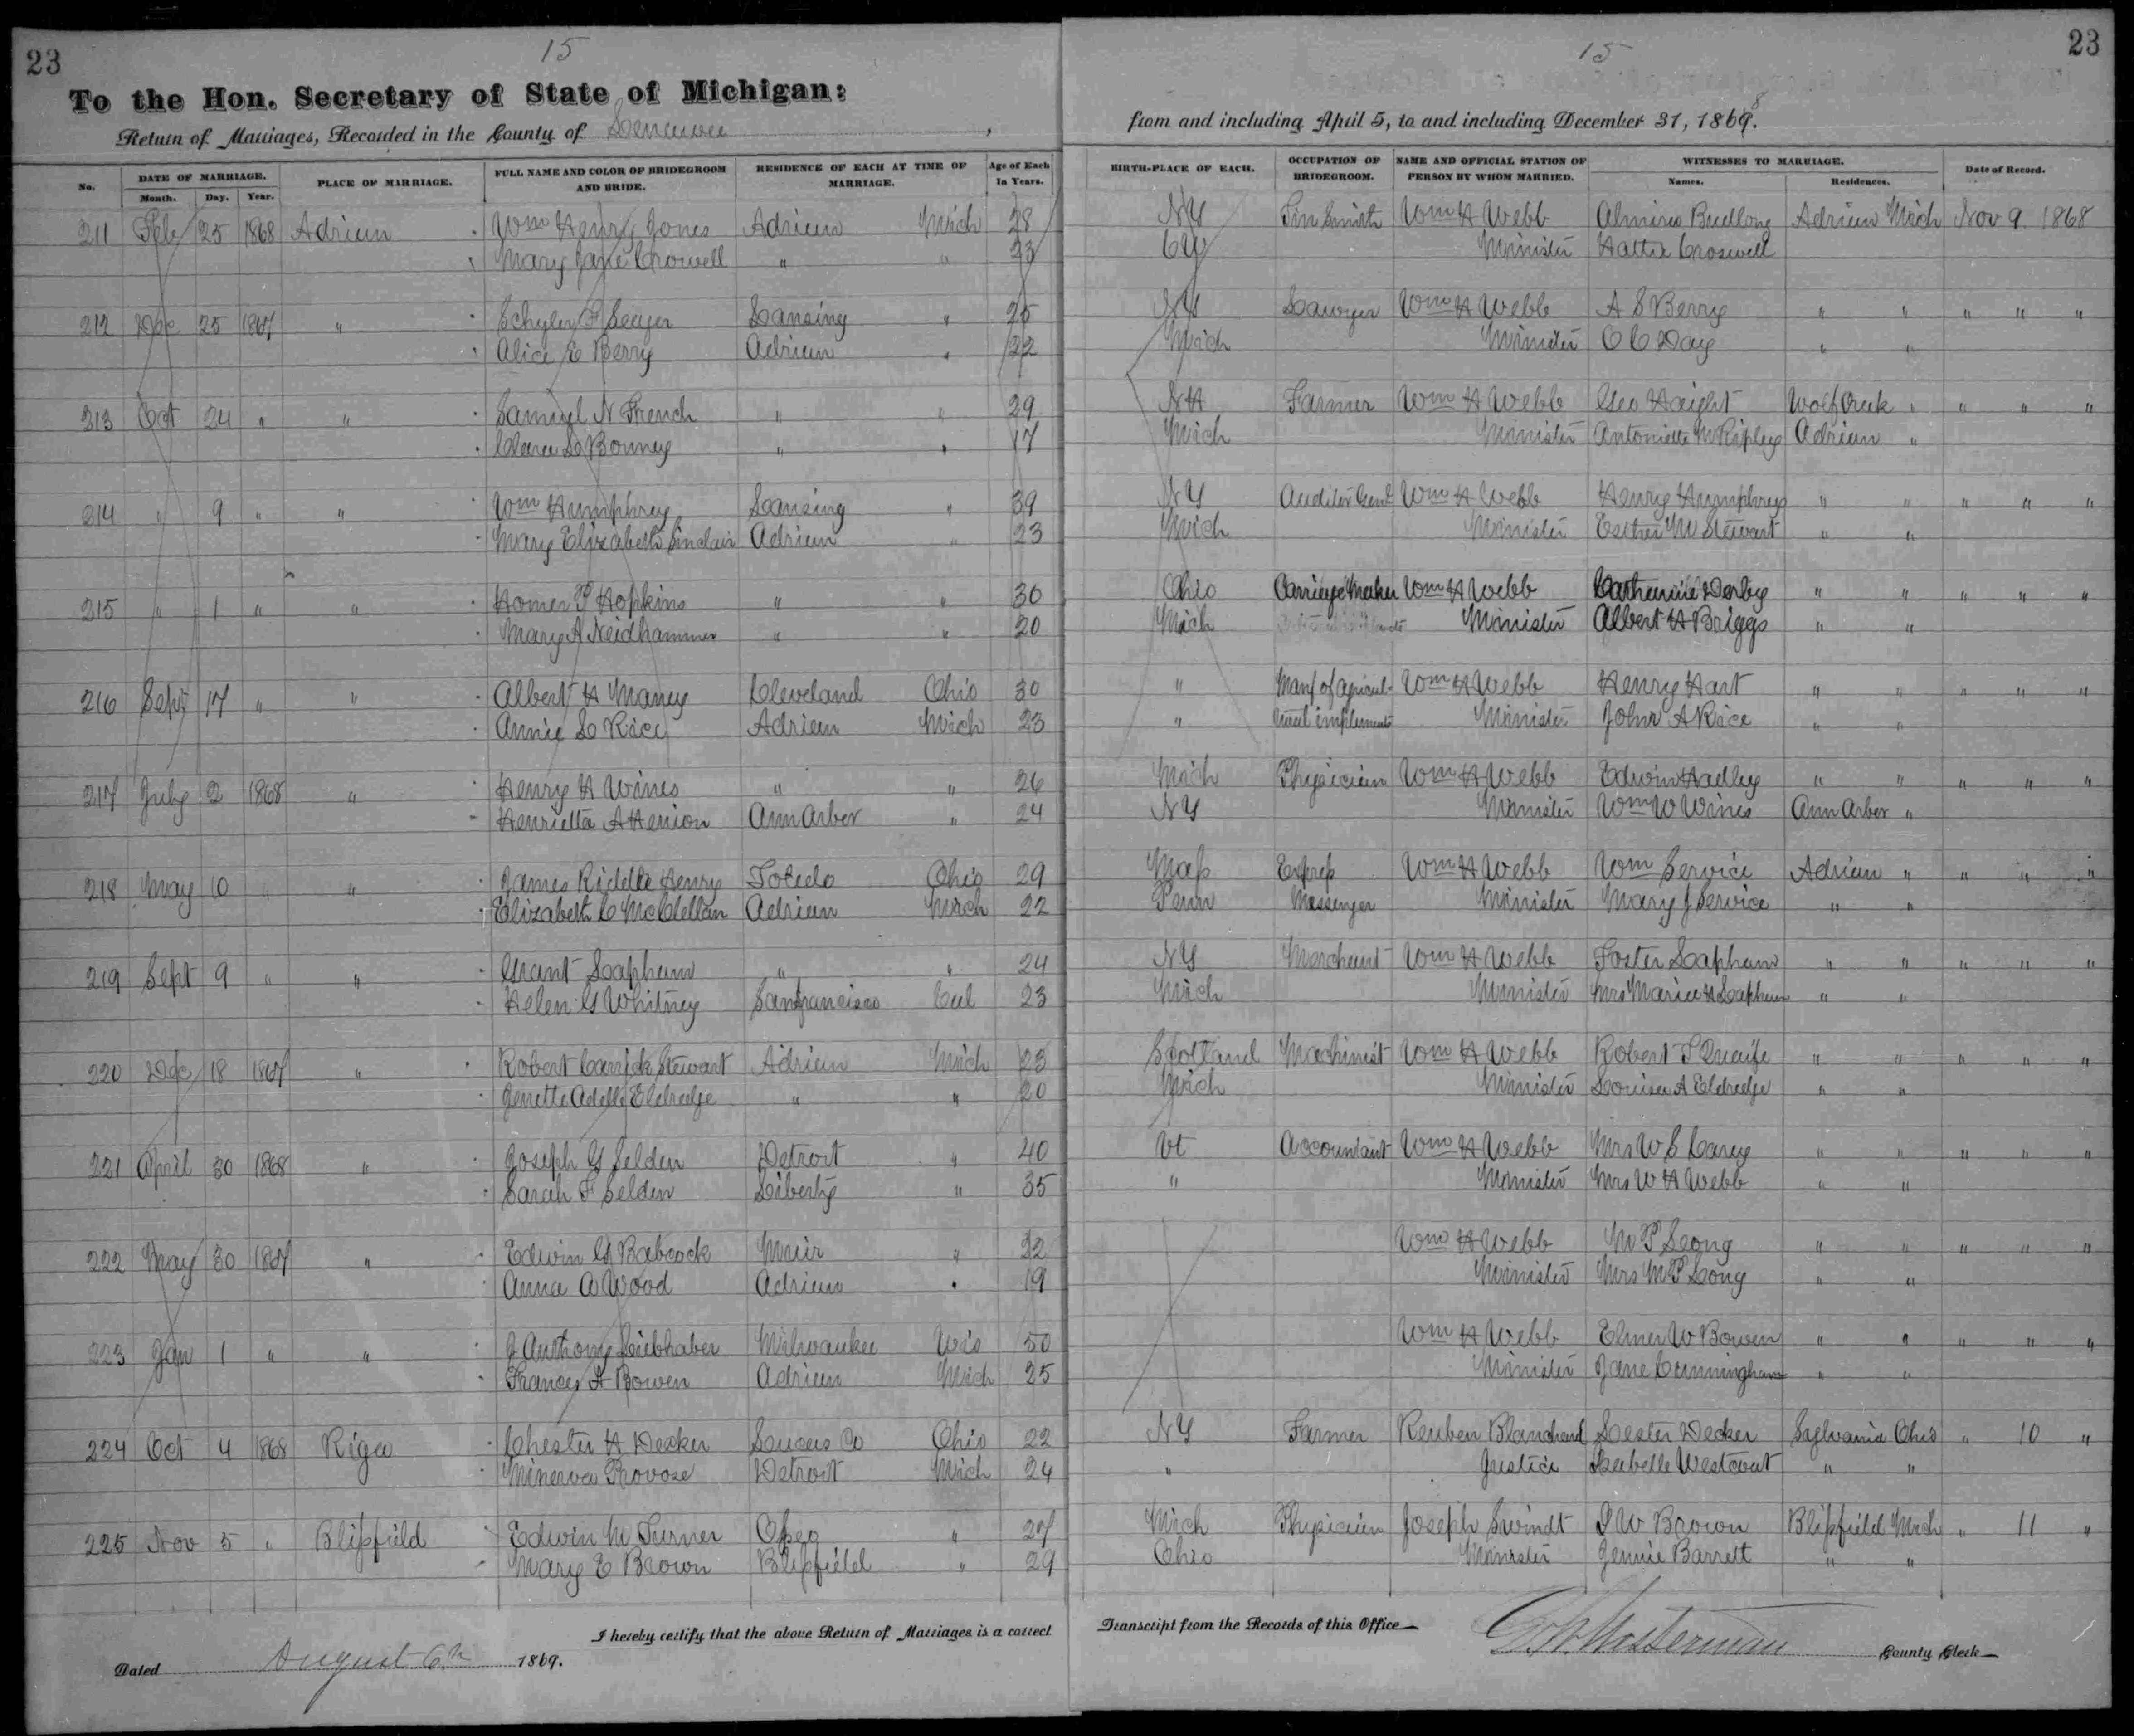 23 15
To the Hon. Secretary of State of Michigan:
Return of Marriages, Recorded in the County of Lenawee,
No. DATE OF MARRIAGE. Month. Day. Year. PLACE OF MARRIAGE. FULL NAME AND COLOR OF BRIDEGROOM AND BRIDE. RESIDENCE OF EACH AT TIME OF MARRIAGE. Age of Each In Years.
211 Feb 25 1868 Adrian Wm Henry Jones Adrian Mich 28
Mary Jane Crowell " " 23
212 Dec 25 1867 " Schyler F Seager Lansing " 25
Alice E Berry Adrian " 22
213 Oct 24 " " Samuel N French " " 29
Clara L Bonney " " 17
214 " 9 " " Wm Humphrey Lansing " 39
Mary Elizabeth Sinclair Adrian " 23
215 " 1 " " Homer P Hopkins " " 30
Mary A Neidhammer " " 20
216 Sept 17 " " Albert H Maney Cleveland Ohio 30
Annie L Rice Adrian Mich 23
217 July 2 1868 " Henry H Wines " " 26
Henrietta A Henion Ann Arbor " 24
218 May 10 " " James Riddle Henry Toledo Ohio 29
Elizabeth C McClellan Adrian Mich 22
219 Sept 9 " " Grant Lapham " " 24
Helen G Whitney San francisco Cal 23
220 Dec 18 1867 " Robert Carrick Stewart Adrian Mich 23
Genette Adelle Eldredge " " 20
221 April 30 1868 " Joseph G Selden Detroit " 40
Sarah F Selden Liberty " 35
222 May 30 1867 " Edwin G Babcock Muir " 32
Anna A Wood Adrian " 19
223 Jan 1 " " J Anthony Liebhaber Milwaukee Wis 50
Frances A Bowen Adrian Mich 35
224 Oct 4 1868 Riga Chester H Decker Lucas Co Ohio 22
Minerva Provose Detroit Mich 24
225 Nov 5 " Blissfield Edwin M Turner Osseo " 27
Mary E Brown Blissfield " 29
I hereby certify that the above Return of Marriages is a correct
Dated August 6th 1869.
15 23
from and including April 5, to and including December 31, 1869.
8
BIRTH-PLACE OF EACH. OCCUPATION OF BRIDEGROOM. NAME AND OFFICIAL STATION OF PERSON BY WHOM MARRIED. WITNESSES TO MARRIAGE. Names. Residences. Date of Record.
NY Tin Smith Wm H Webb Almira Budlong Adrian Mich Nov 9 1868
CW Minister Hattie Croswell
NY Lawyer Wm H Webb A S Berry " " " " "
Mich Minister C C Day " "
NH Farmer Wm H Webb Geo Haight Wolf Creek " " " "
Mich Minister Antoinette M Ripley Adrian "
NY Auditor Genl Wm H Webb Henry Humphrey " " " " "
Mich Minister Esther M Stewart " "
Ohio Carriage Maker Wm H Webb Catharine Derby " " " " "
Mich Minister Albert H Briggs " "
" Manf of Agricul- Wm H Webb Henry Hart " " " " "
" tural implements Minister John A Rice " "
Mich Physician Wm H Webb Edwin Hadley " " " " "
NY Minister Wm W Wines Ann Arbor "
Mass Express Wm H Webb Wm Service Adrian " " " "
Penn Messenger Minister Mary J Service " "
NY Merchant Wm H Webb Foster Lapham " " " " "
Mich Minister Mrs Maria H Lapham " "
Scotland Machinist Wm H Webb Robert T Quaife " " " " "
Mich Minister Louisa A Eldredge " "
Vt Accountant Wm H Webb Mrs W S Carey " " " " "
" Minister Mrs W H Webb " "
Wm H Webb M P Long " " " " "
Minister Mrs M P Long " "
Wm H Webb Elmer W Bowen " " " " "
Minister Jane Cunningham " "
NY Farmer Reuben Blanchard Lester Decker Sylvania Ohio " 10 "
" Justice Isabelle Westcoat " "
Mich Physician Joseph Swindt I W Brown Blissfield Mich " 11 "
Ohio Minister Jennie Barrett " "
Transcript from the Records of this Office—
Masterman County Clerk—